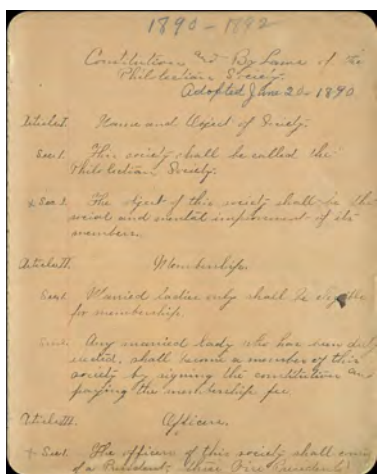 1890-1892
Constitution and By Laws of the
Philolectian Society.
Adopted June 20-1890
Article I. Name and Object of Society.
Sec 1. This society shall be called the
Philolectian Society.
x Sec 2. The object of this society shall be the
social and mental improvement of its
members.
Article II. Membership.
Sec 1. Married ladies only shall be eligible
for membership.
Any married lady who has been duly
elected, shall become a member of this
society by signing the constitution and
paying the membership fee.
Article III. Officers.
x Sec 1. The officers of this society shall
of a President, three Vice Presidents